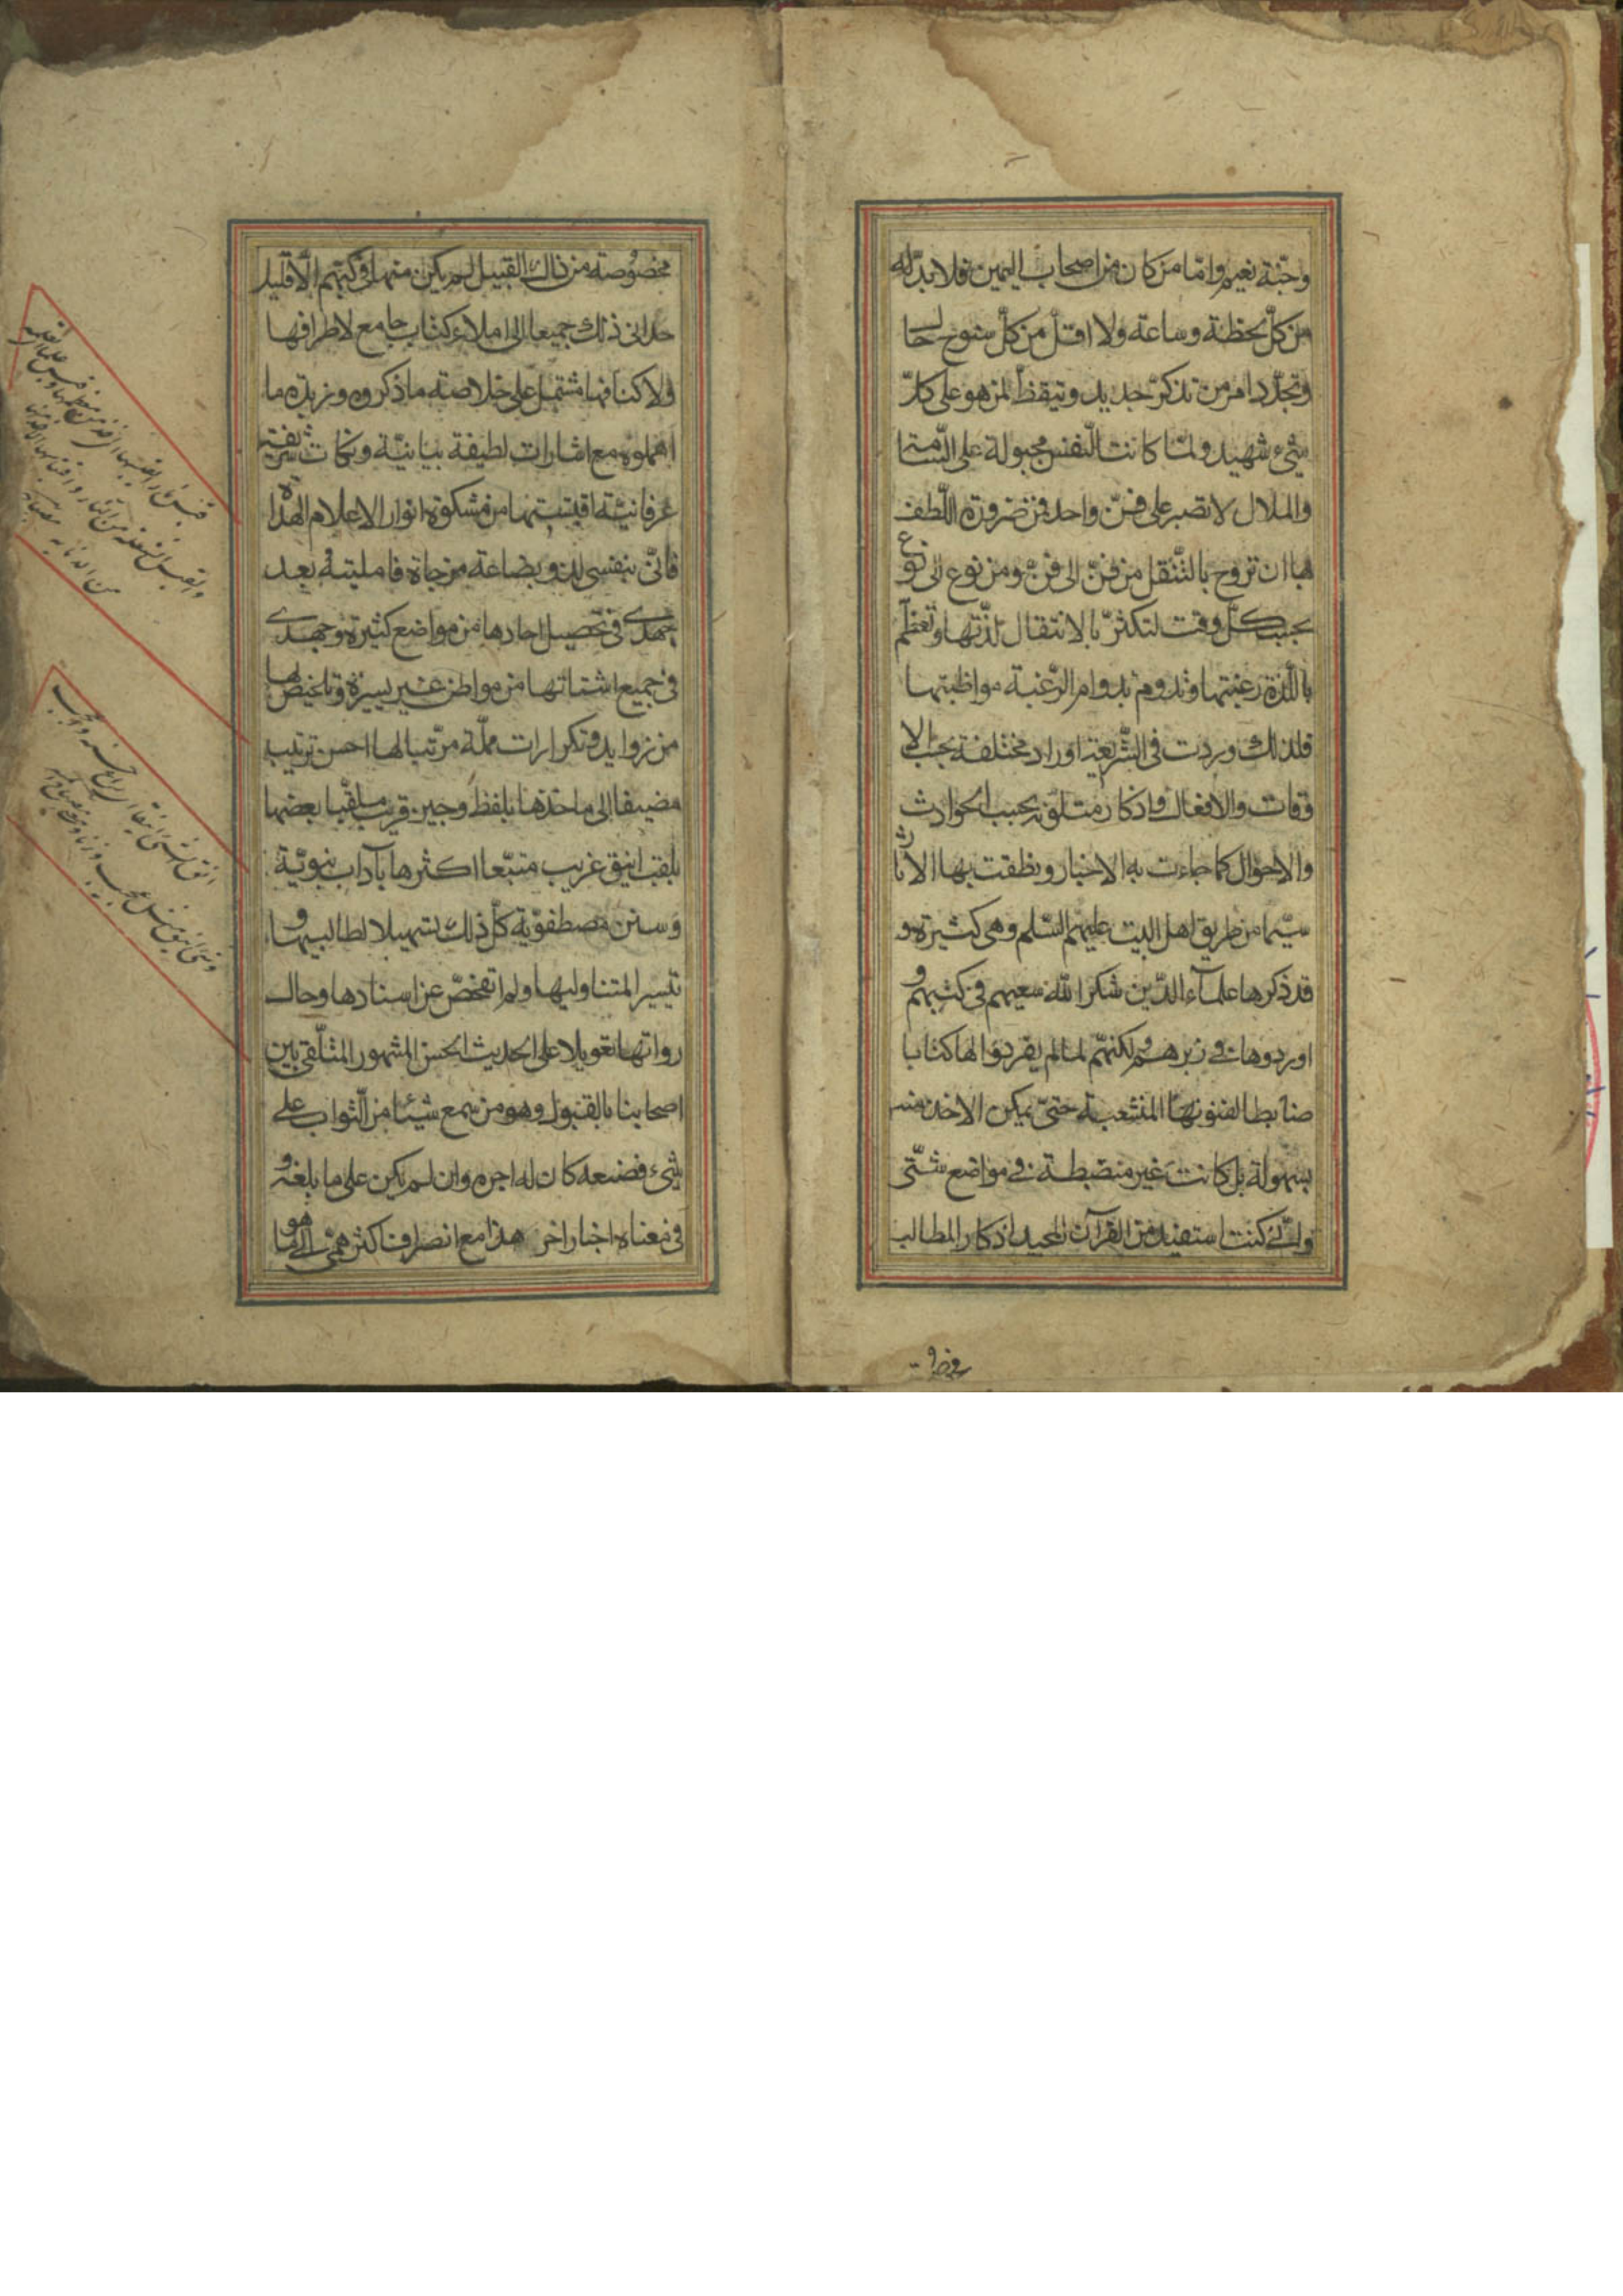 وجنّة نعيم وامّا من كان من اصحاب اليمين فلا بدّ له
من كلّ لحظة وساعة ولا اقلّ من كلّ سنوح حال
وتجدّد امر من تذكّر جديد وتيقّظ لمن هو على كلّ
شيء شهيد ولمّا كانت النّفس مجبولة على السّامة
والملال لا تصبر على فنّ واحد فمن ضرورة اللّطف
بها ان تروح بالتّنقل من فنّ الى فنّ ومن نوع الى نوع
بحسب كلّ وقت لتكثر بالانتقال لذّتها وتعظّم
باللّذة رغبتها وتدوم بدوام الرّغبة مواظبتها
فلذلك وردت فى الشّريعة اوراد مختلفة بحسب الا
وقات والافعال واذكار متلوّنة بحسب الحوادث
والاحوال كما جاءت به الاخبار ونطقت بها الاثار
سيّما من طريق اهل البيت عليهم السّلم وهى كثيرة و
قد ذكرها علماء الدّين شكر الله سعيهم فى كتبهم و
اوردوها فى زبرهم ولكنهّم لمالم يفردوا لها كتابا
ضابطا لفنونها المنشعبة حتىّ يمكن الاخذ منه
بسهولة بل كانت غير منضبطة فى مواضع شتّى
وانّى كنت استفيد من القرآن المجيد اذكار المطالب
مخصوصة من ذلك القبيل لم يكن منها فى كتبهم الّا قليل
حدانى ذلك جميعا الى املاء كتاب جامع لاطرافها
ولاكنافها مشتمل على خلاصة ما ذكروه وزبدة ما
اهملوه مع اشارات لطيفة بيانيّة ونكات شريفة
عرفانيّة اقتبستها من مشكوة انوار الاعلام الهداة
فانىّ بنفسى لذو بضاعة مزجاة فامليته بعد
جهدى فى تحصيل احادها من مواضع كثيرة وجهدى
فى جميع اشتاتها من مواطن غير يسيرة وتلخيص لها
من زوايد وتكرارات مملّة مرّتبا لها احسن ترتيب
مضيفا الى ماخذها بلفظ وجيز قريب ملقّبا بعضها
بلقب انيق غريب متبّعا اكثرها بآداب نبويّة
وسنن مصطفويّة كلّ ذلك تسهيلا لطالبيها و
تيسيرا لمتناوليها ولم اتفحّص عن اسنادها وحال
رواتها تعويلا على الحديث الحسن المشهور المتلّقى بين
اصحابنا بالقبول وهو من سمع شيئا من الثّواب على
شيء فصنعه كان له اجره وان لم يكن على ما بلغه و
فى معناه اخبار اخر هذا مع انصراف اكثر همّتى الى ما هو